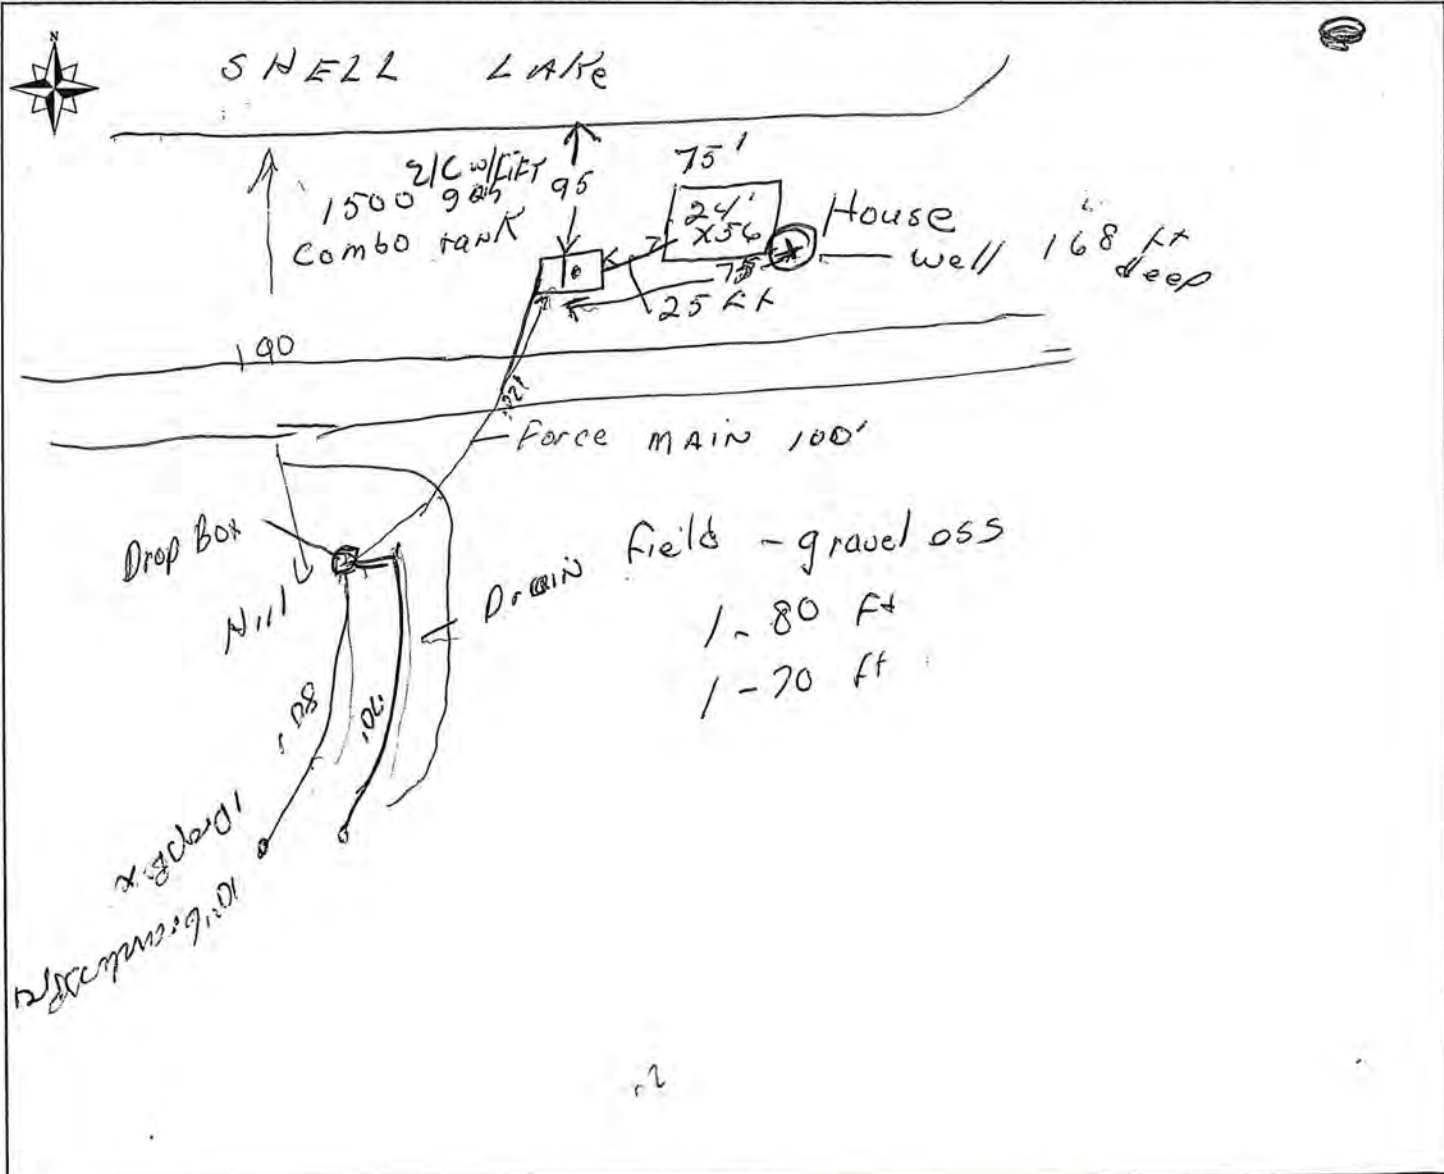 N
SHELL LAKE
2/C w/LIFT
1500 gals
Combo tank
95
75'
24'
X56
House
well 168 ft
deep
75
25 ft
190
Force MAIN 100'
Drop Box
Hill
Drain field - gravel oss
1-80 ft
1-70 ft
80'
70'